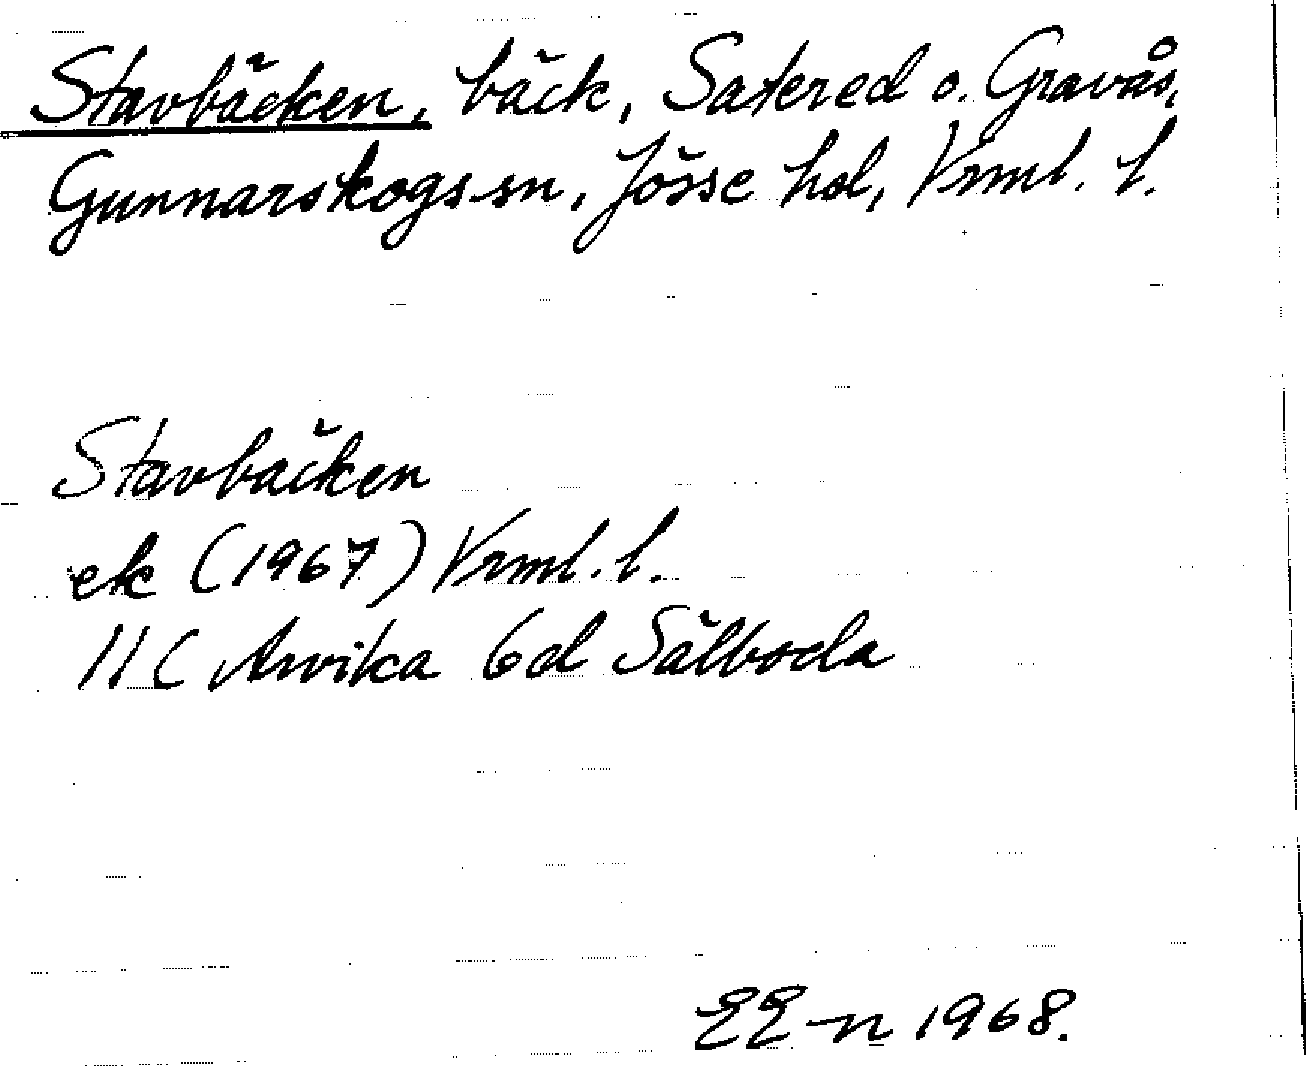 Stavbäcken, bäck, Satered o. Gravås,
Gunnarskogs sn, Jösse hd, Vrml. l.
Stavbäcken
ek (1967) Vrml. l.
11C Arvika 6d Sälboda
EE-n 1968.